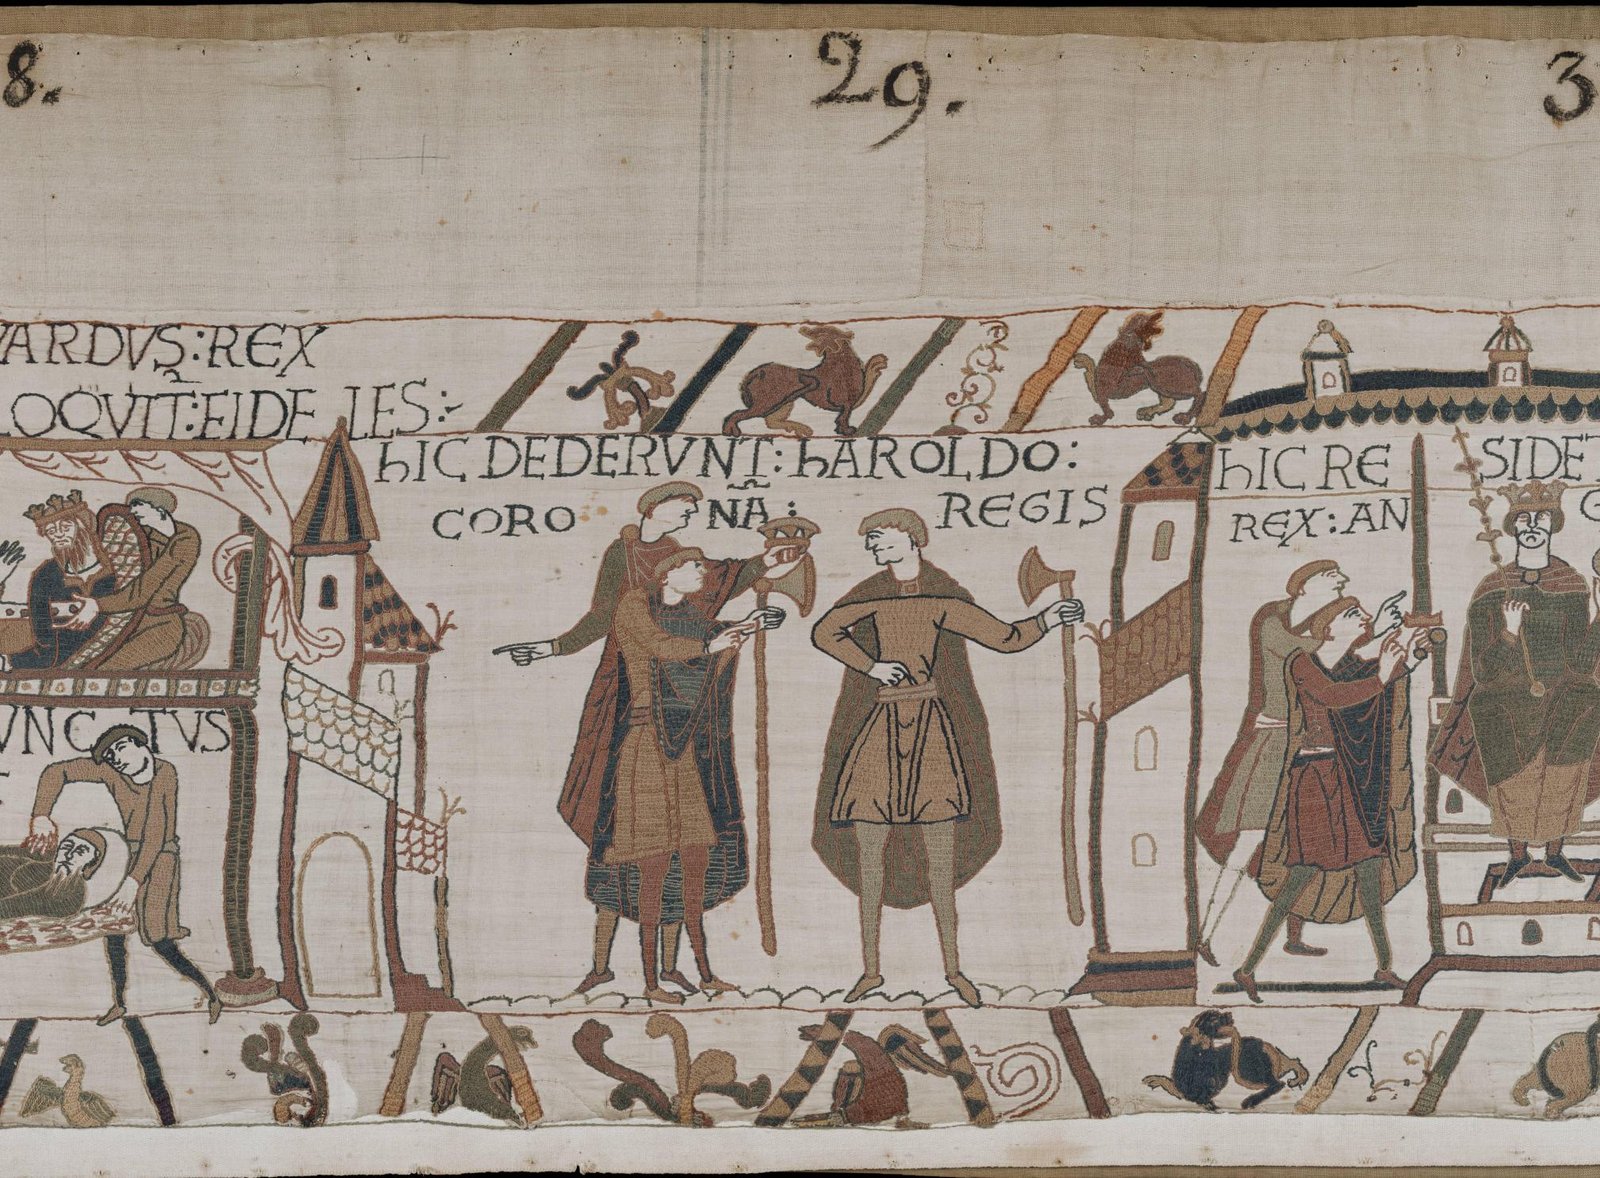 8. 29. 3
VARDVS : REX
LOQVIT : FIDE LES :
hIC DEDERVNT : hAROLDO :
CORO NA : REGIS
VNC TVS
hIC RE SIDET
REX : AN G